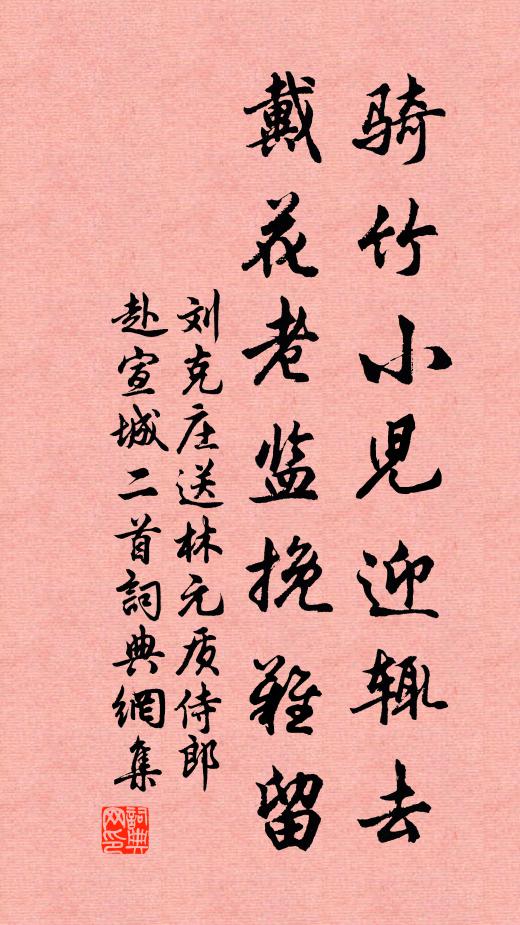 骑竹小児迎辄去
戴花老监挽难留
刘克庄送林元质侍郎
赴宣城二首詞典網集
詞典
网印